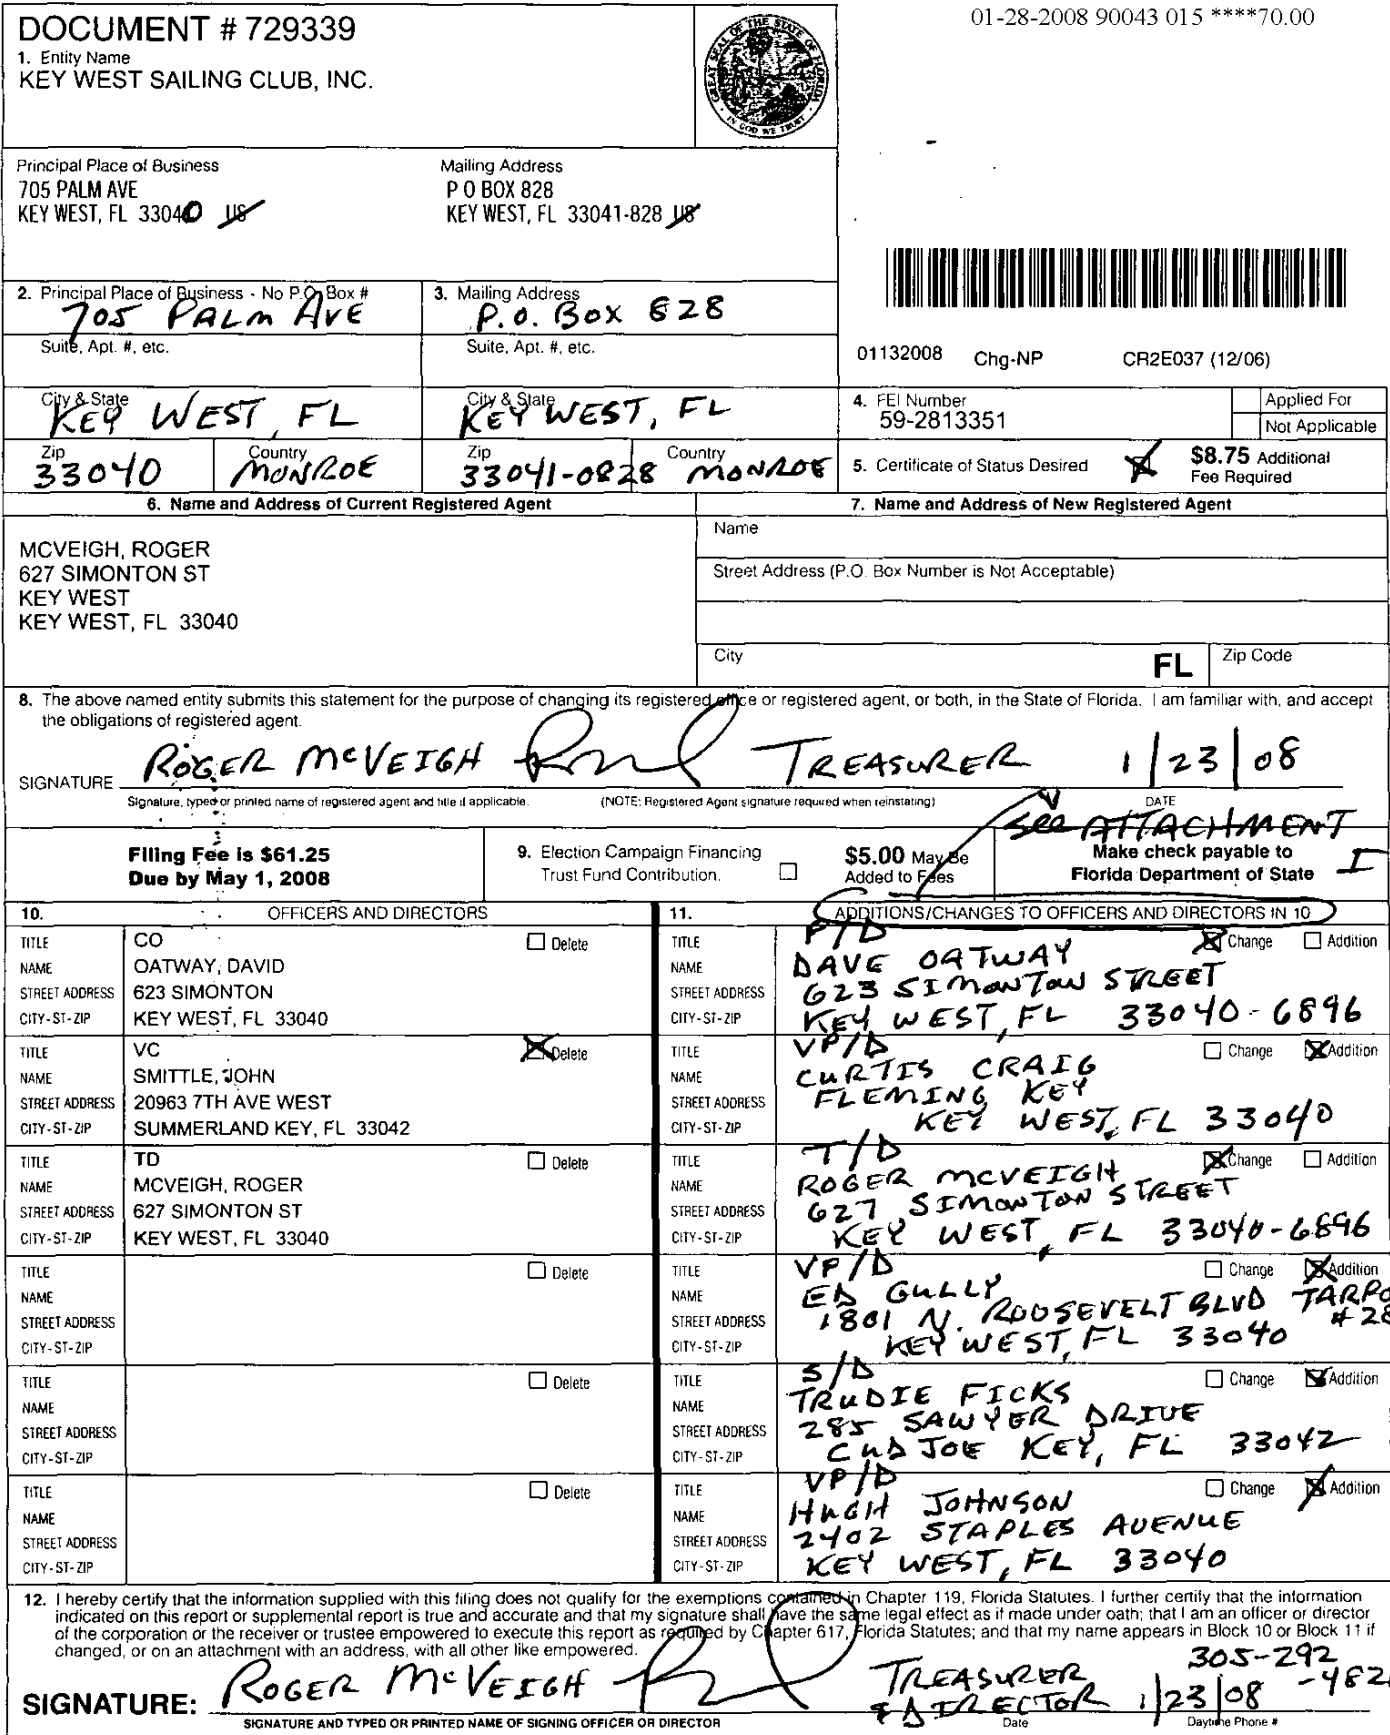 DOCUMENT # 729339
1. Entity Name
KEY WEST SAILING CLUB, INC.
GREAT SEAL OF THE STATE OF FLORIDA
IN GOD WE TRUST
01-28-2008 90043 015 ****70.00
Principal Place of Business
705 PALM AVE
KEY WEST, FL 33040 US
Mailing Address
P O BOX 828
KEY WEST, FL 33041-828 US
2. Principal Place of Business - No P.O. Box #
705 PALM AVE
Suite, Apt. #, etc.
City & State
KEY WEST, FL
Zip
33040
Country
MONROE
3. Mailing Address
P.O. BOX 828
Suite, Apt. #, etc.
City & State
KEY WEST, FL
Zip
33041-0828
Country
MONROE
01132008 Chg-NP CR2E037 (12/06)
4. FEI Number
59-2813351
Applied For
Not Applicable
5. Certificate of Status Desired
$8.75 Additional
Fee Required
6. Name and Address of Current Registered Agent
MCVEIGH, ROGER
627 SIMONTON ST
KEY WEST
KEY WEST, FL 33040
7. Name and Address of New Registered Agent
Name
Street Address (P.O. Box Number is Not Acceptable)
City
FL
Zip Code
8. The above named entity submits this statement for the purpose of changing its registered office or registered agent, or both, in the State of Florida. I am familiar with, and accept
the obligations of registered agent.
SIGNATURE ROGER MCVEIGH TREASURER 1/23/08
Signature, typed or printed name of registered agent and title if applicable. (NOTE: Registered Agent signature required when reinstating) DATE
See ATTACHMENT I
Filing Fee is $61.25
Due by May 1, 2008
9. Election Campaign Financing
Trust Fund Contribution.
$5.00 May Be
Added to Fees
Make check payable to
Florida Department of State
10. OFFICERS AND DIRECTORS
TITLE CO Delete
NAME OATWAY, DAVID
STREET ADDRESS 623 SIMONTON
CITY-ST-ZIP KEY WEST, FL 33040
TITLE VC Delete
NAME SMITTLE, JOHN
STREET ADDRESS 20963 7TH AVE WEST
CITY-ST-ZIP SUMMERLAND KEY, FL 33042
TITLE TD Delete
NAME MCVEIGH, ROGER
STREET ADDRESS 627 SIMONTON ST
CITY-ST-ZIP KEY WEST, FL 33040
TITLE Delete
NAME
STREET ADDRESS
CITY-ST-ZIP
TITLE Delete
NAME
STREET ADDRESS
CITY-ST-ZIP
TITLE Delete
NAME
STREET ADDRESS
CITY-ST-ZIP
11. ADDITIONS/CHANGES TO OFFICERS AND DIRECTORS IN 10
TITLE P/D Change Addition
NAME DAVE OATWAY
STREET ADDRESS 623 SIMONTON STREET
CITY-ST-ZIP KEY WEST, FL 33040-6896
TITLE VP/D Change Addition
NAME CURTIS CRAIG
STREET ADDRESS FLEMING KEY
CITY-ST-ZIP KEY WEST, FL 33040
TITLE T/D Change Addition
NAME ROGER MCVEIGH
STREET ADDRESS 627 SIMONTON STREET
CITY-ST-ZIP KEY WEST, FL 33040-6896
TITLE VP/D Change Addition
NAME ED GULLY
STREET ADDRESS 1801 N. ROOSEVELT BLVD TARPO
#28
CITY-ST-ZIP KEY WEST, FL 33040
TITLE S/D Change Addition
NAME TRUDIE FICKS
STREET ADDRESS 285 SAWYER DRIVE
CITY-ST-ZIP CUDJOE KEY, FL 33042
TITLE VP/D Change Addition
NAME HUGH JOHNSON
STREET ADDRESS 2402 STAPLES AVENUE
CITY-ST-ZIP KEY WEST, FL 33040
12. I hereby certify that the information supplied with this filing does not qualify for the exemptions contained in Chapter 119, Florida Statutes. I further certify that the information
indicated on this report or supplemental report is true and accurate and that my signature shall have the same legal effect as if made under oath; that I am an officer or director
of the corporation or the receiver or trustee empowered to execute this report as required by Chapter 617, Florida Statutes; and that my name appears in Block 10 or Block 11 if
changed, or on an attachment with an address, with all other like empowered.
SIGNATURE: ROGER MCVEIGH TREASURER
& DIRECTOR 1/23/08 305-292
-482
SIGNATURE AND TYPED OR PRINTED NAME OF SIGNING OFFICER OR DIRECTOR Date Daytime Phone #